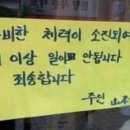 비한 체력이 소진되여
이상 일이 안됩니다
죄송합니다
주인